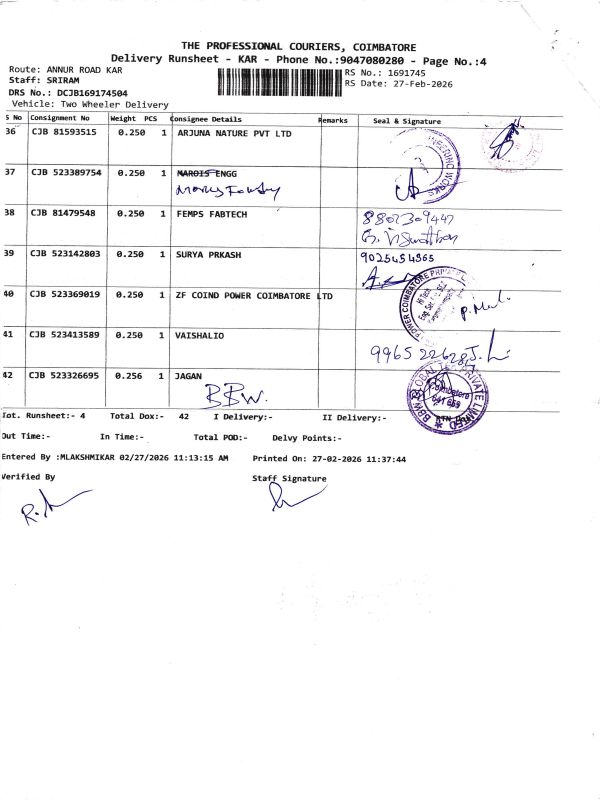 THE PROFESSIONAL COURIERS, COIMBATORE
Delivery Runsheet - KAR - Phone No.:9047080280 - Page No.:4
Route: ANNUR ROAD KAR
RS No.: 1691745
Staff: SRIRAM
RS Date: 27-Feb-2026
DRS No.: DCJB169174504
Vehicle: Two Wheeler Delivery
S No Consignment No Weight PCS Consignee Details Remarks Seal & Signature
36 CJB 81593515 0.250 1 ARJUNA NATURE PVT LTD
37 CJB 523389754 0.250 1 MAROIS ENGG
38 CJB 81479548 0.250 1 FEMPS FABTECH
39 CJB 523142803 0.250 1 SURYA PRKASH 9025454565
40 CJB 523369019 0.250 1 ZF COIND POWER COIMBATORE LTD
POWER COIMBATORE PRIVATE
41 CJB 523413589 0.250 1 VAISHALIO
9965 22628
42 CJB 523326695 0.256 1 JAGAN
BBW.
BBW GLOBAL PRIVATE LIMITED
Coimbatore
Tot. Runsheet:- 4 Total Dox:- 42 I Delivery:- II Delivery:-
Out Time:- In Time:- Total POD:- Delvy Points:-
Entered By :MLAKSHMIKAR 02/27/2026 11:13:15 AM Printed On: 27-02-2026 11:37:44
Verified By Staff Signature